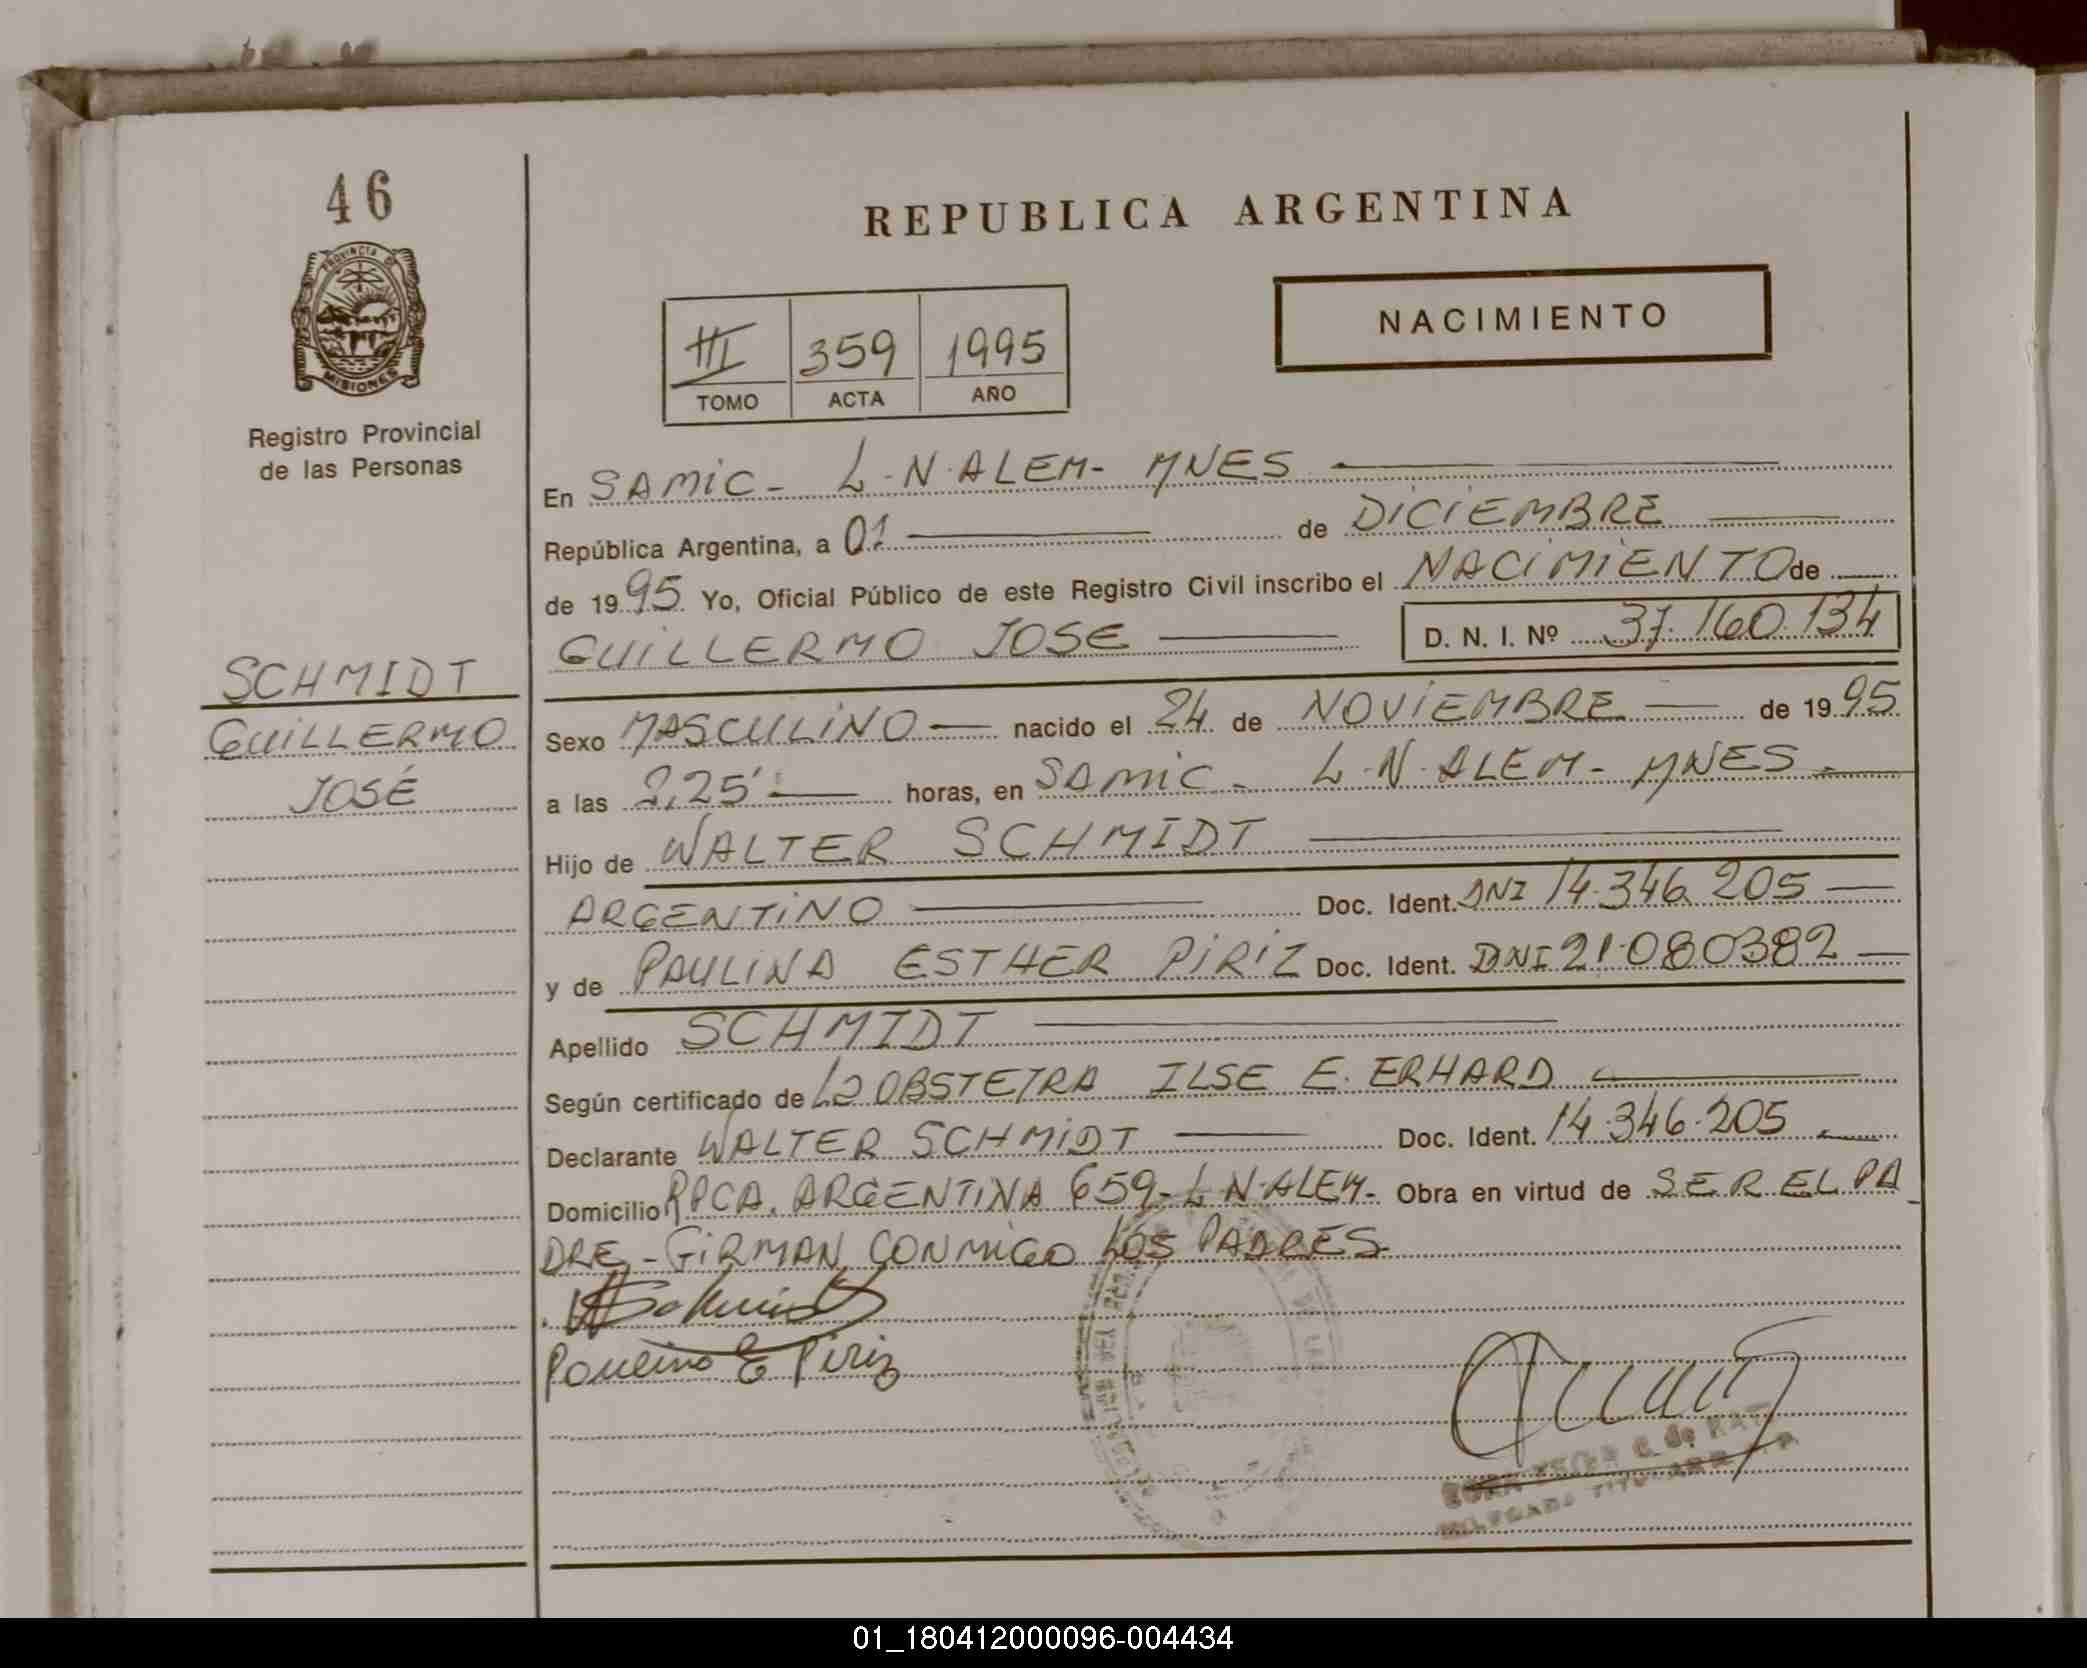 46
REPUBLICA ARGENTINA
PROVINCIA DE
MISIONES
III 359 1995
TOMO ACTA AÑO
NACIMIENTO
Registro Provincial
de las Personas
En SAMIC - L.N.ALEM - MNES
República Argentina, a 01 de DICIEMBRE
de 1995 Yo, Oficial Público de este Registro Civil inscribo el NACIMIENTO de
GUILLERMO JOSE D. N. I. Nº 37.160.134
SCHMIDT
GUILLERMO
JOSÉ
Sexo MASCULINO nacido el 24 de NOVIEMBRE de 1995
a las 2,25' horas, en SAMIC - L.N.ALEM - MNES
Hijo de WALTER SCHMIDT
ARGENTINO Doc. Ident. DNI 14.346.205
y de PAULINA ESTHER PIRIZ Doc. Ident. DNI 21.080382
Apellido SCHMIDT
Según certificado de La OBSTETRA ILSE E. ERHARD
Declarante WALTER SCHMIDT Doc. Ident. 14.346.205
Domicilio RPCA. ARGENTINA 659 - L N.ALEM - Obra en virtud de SER EL PA
DRE - FIRMAN CONMIGO LOS PADRES
W Schmidt
Paulina E Piriz
01_180412000096-004434